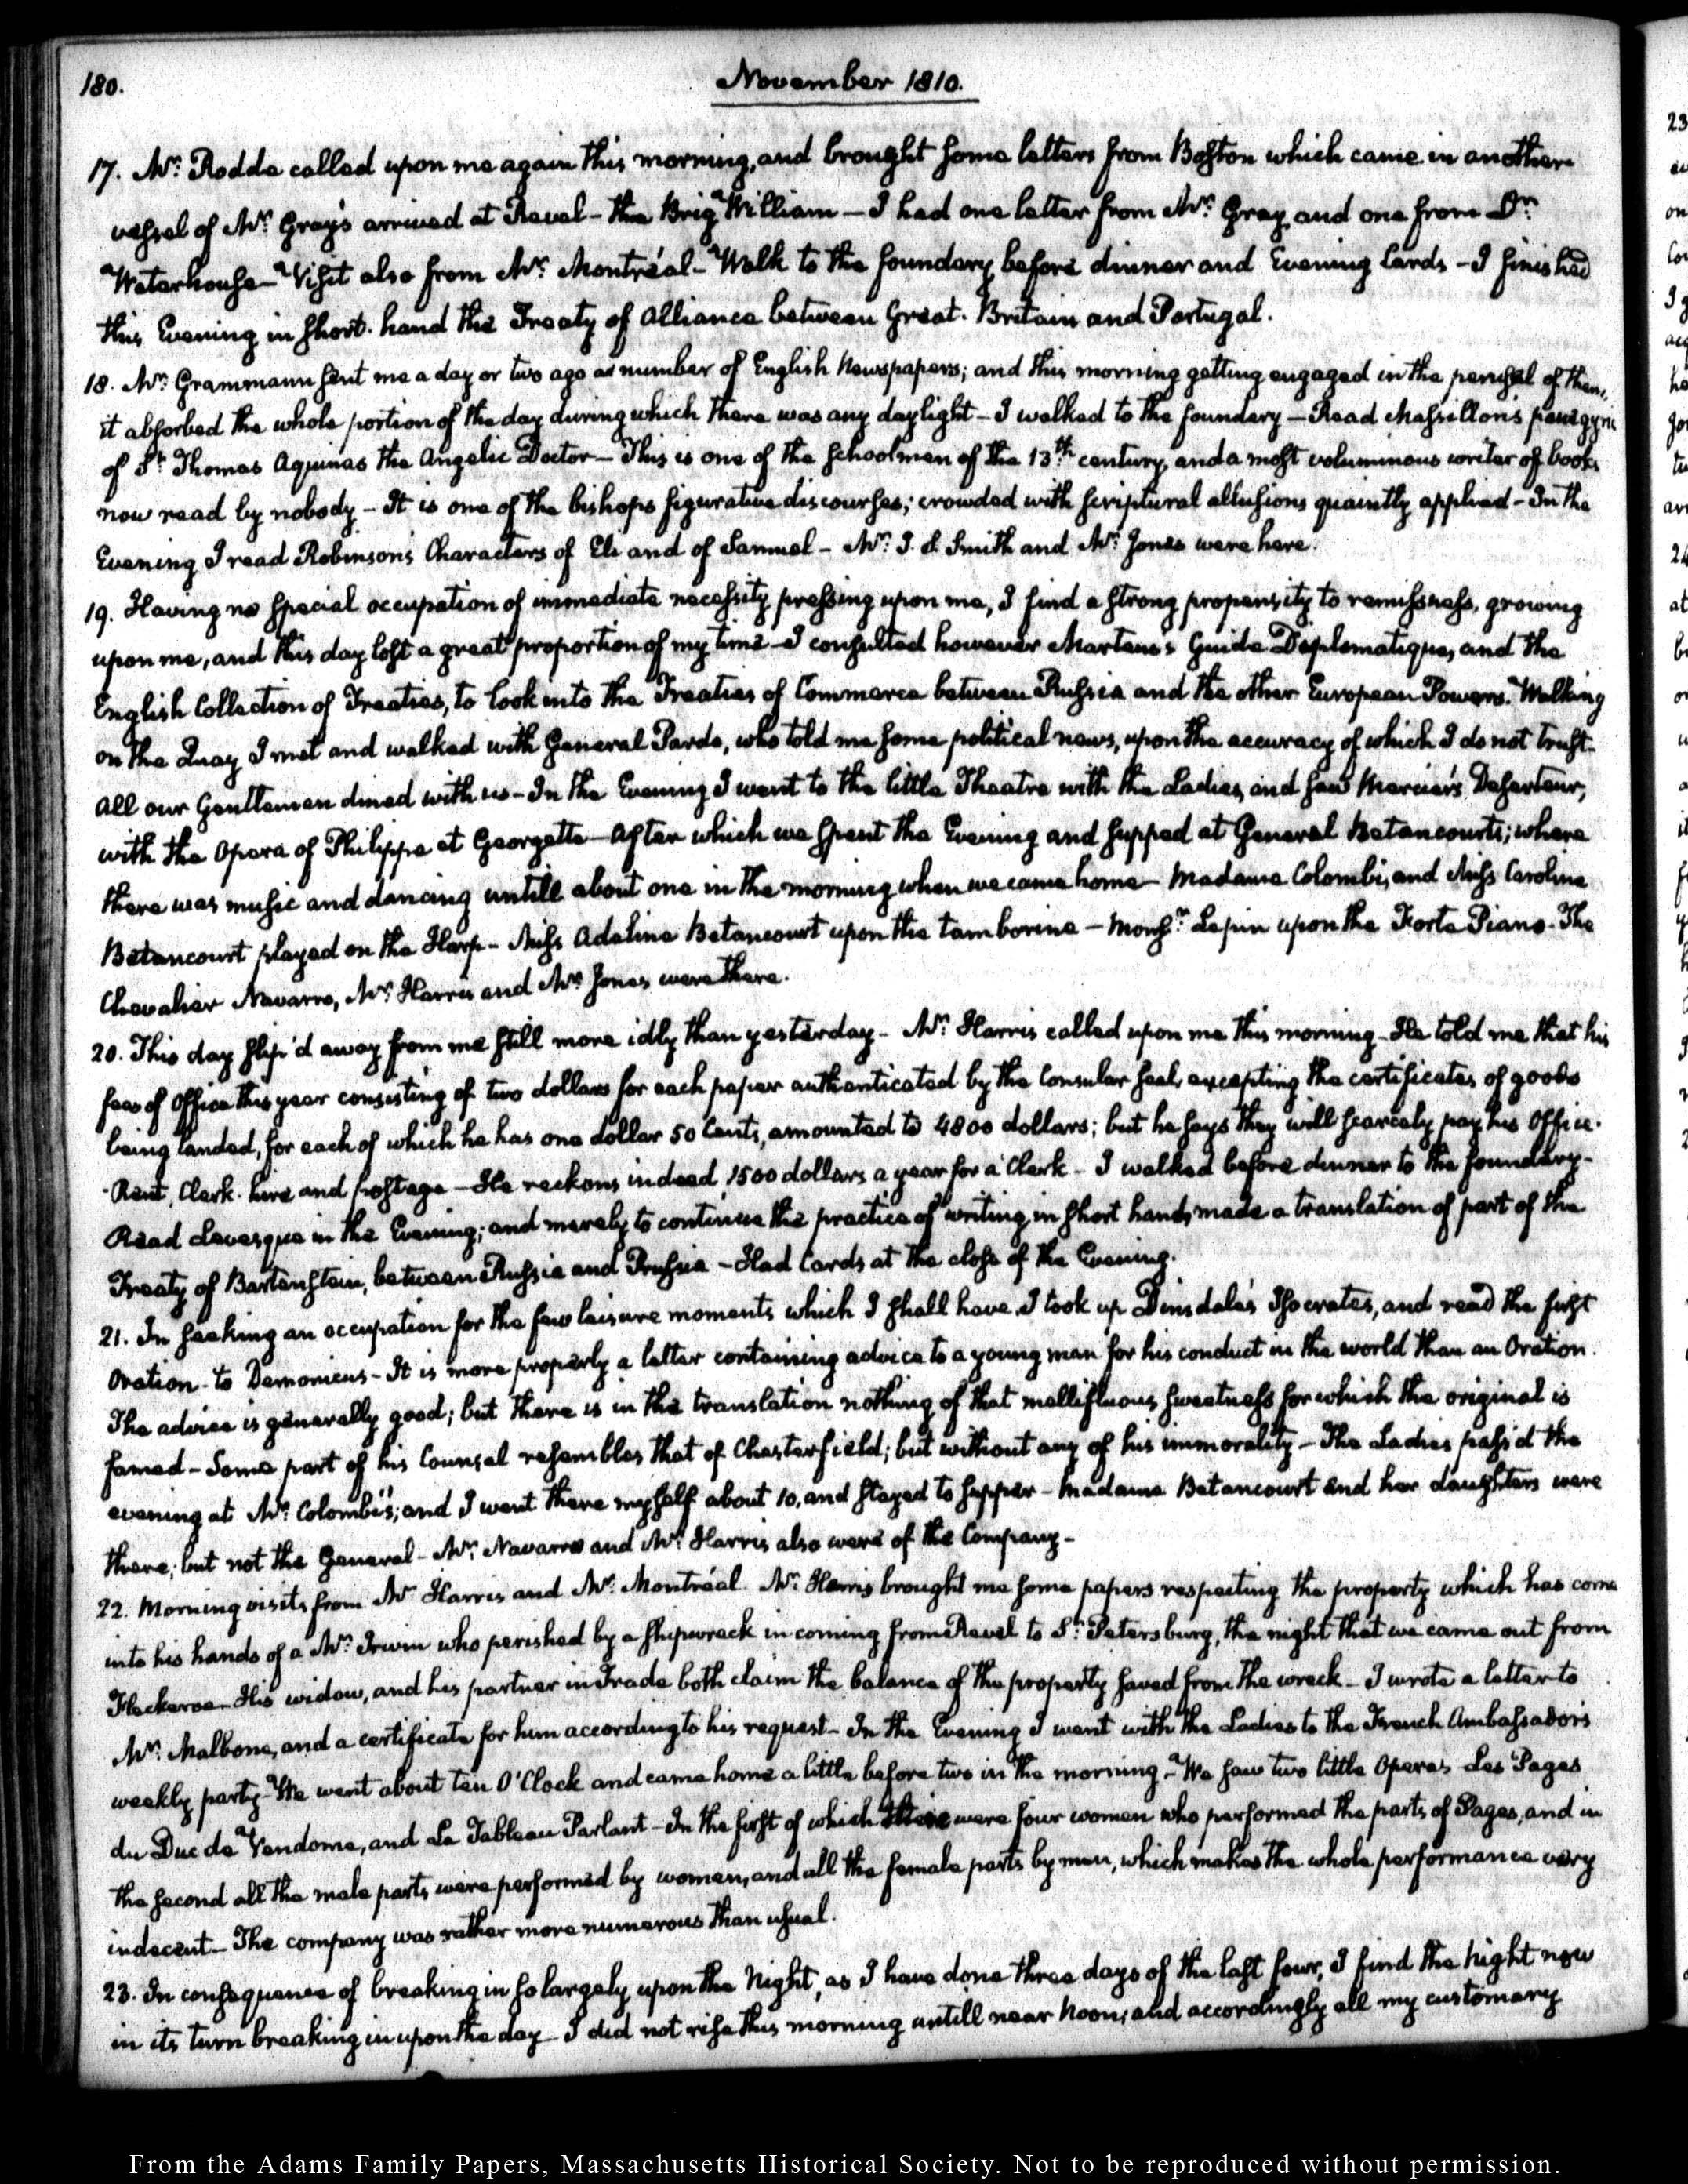 180.
November 1810.
17. Mr: Rodde called upon me again this morning, and brought some letters from Boston which came in another
vessel of Mr: Gray's arrived at Reval - the Brig William - I had one letter from Mr: Gray, and one from Dr:
Waterhouse - Visit also from Mr: Montréal - Walk to the foundery before dinner and Evening Cards - I finished
this Evening in short-hand the Treaty of Alliance between Great-Britain and Portugal.
18. Mr: Grammann sent me a day or two ago a number of English Newspapers; and this morning getting engaged in the perusal of them,
it absorbed the whole portion of the day during which there was any daylight - I walked to the foundery - Read Massillon's panegyric
of St: Thomas Aquinas the Angelic Doctor - This is one of the schoolmen of the 13th century, and a most voluminous writer of books
now read by nobody - It is one of the bishops figurative discourses; crowded with scriptural allusions quaintly applied - In the
Evening I read Robinson's Characters of Eli and of Samuel - Mr: J. S. Smith and Mr: Jones were here.
19. Having no special occupation of immediate necessity pressing upon me, I find a strong propensity to remissness, growing
upon me, and this day lost a great proportion of my time - I consulted however Martens's Guide Diplomatique, and the
English Collection of Treaties, to look into the Treaties of Commerce between Russia and the other European Powers. Walking
on the Quay I met and walked with General Pardo, who told me some political news, upon the accuracy of which I do not trust.
All our Gentlemen dined with us - In the Evening I went to the little Theatre with the Ladies, and saw Mercier's Deserteur,
with the Opera of Philippe et Georgette - After which we spent the Evening and supped at General Betancourt's; where
there was music and dancing untill about one in the morning when we came home - Madame Colombi, and Miss Caroline
Betancourt played on the Harp - Miss Adeline Betancourt upon the tamborine - Monsr: Lepin upon the Forte Piano - The
Chevalier Navarro, Mr: Harris and Mr: Jones were there.
20. This day slip'd away from me still more idly than yesterday - Mr: Harris called upon me this morning - He told me that his
fees of Office this year consisting of two dollars for each paper authenticated by the Consular seal, excepting the certificates of goods
being landed, for each of which he has one dollar 50 Cents, amounted to 4800 dollars; but he says they will scarcely pay his Office-
-Rent, Clerk-hire and postage - He reckons indeed 1500 dollars a year for a Clerk - I walked before dinner to the foundery -
Read Levesque in the Evening; and merely to continue the practice of writing in short hand, made a translation of part of the
Treaty of Bartenstein, between Russia and Prussia - Had Cards at the close of the Evening.
21. In seeking an occupation for the few leisure moments which I shall have, I took up Dinsdale's Isocrates, and read the first
Oration - to Demonicus - It is more properly a letter containing advice to a young man for his conduct in the world than an Oration.
The advice is generally good; but there is in the translation nothing of that mellifluous sweetness for which the original is
famed - Some part of his Counsel resembles that of Chesterfield; but without any of his immorality - The Ladies pass'd the
evening at Mr: Colombi's; and I went there myself about 10, and stayed to supper - Madame Betancourt and her daughters were
there; but not the General - Mr: Navarro and Mr: Harris also were of the Company -
22. Morning visits from Mr Harris and Mr: Montréal. Mr: Harris brought me some papers respecting the property which has come
into his hands of a Mr: Irwin who perished by a shipwreck in coming from Reval to St: Petersburg, the night that we came out from
Fleckeroe - His widow, and his partner in Trade both claim the balance of the property saved from the wreck - I wrote a letter to
Mr: Malbone, and a certificate for him according to his request - In the Evening I went with the Ladies to the French Ambassador's
weekly party - We went about ten O'Clock and came home a little before two in the morning - We saw two little Operas Les Pages
du Duc de Vendome, and Le Tableau Parlant - In the first of which there were four women who performed the parts of Pages, and in
the second all the male parts were performed by women, and all the female parts by men, which makes the whole performance very
indecent - The company was rather more numerous than usual.
23. In consequence of breaking in so largely upon the Night, as I have done three days of the last four, I find the Night now
in its turn breaking in upon the day - I did not rise this morning untill near Noon; and accordingly all my customary
From the Adams Family Papers, Massachusetts Historical Society. Not to be reproduced without permission.